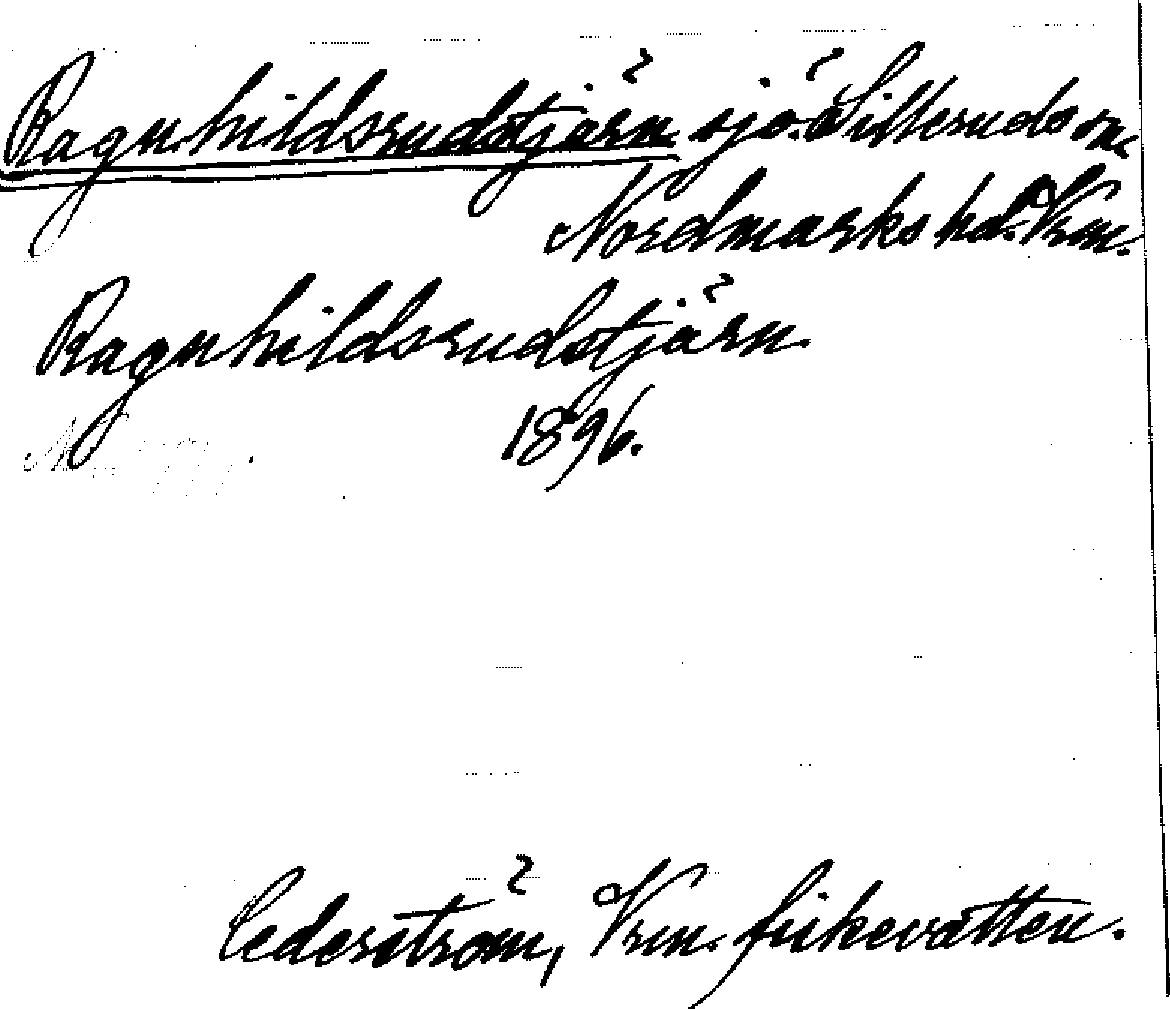 Ragnhildsrudstjärn sjö. i Silleruds sn.
Nordmarks hd. Vrm.
Ragnhildsrudstjärn.
1896.
Cederström, Vrm. fiskevatten.